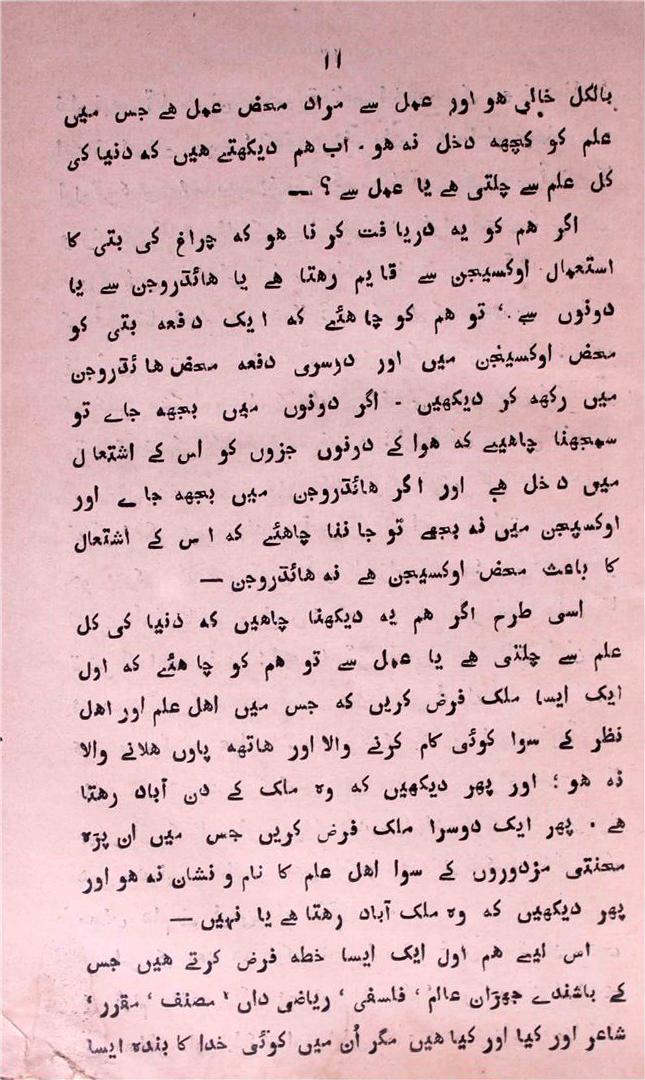 ۱۱
بالکل خالی هو اور عمل سے مراد محض عمل هے جس میں
علم کو کچهه دخل نه هو ۔ اب هم دیکهتے هیں که دنیا کی
کل علم سے چلتی هے یا عمل سے ؟ —
اگر هم کو یه دریافت کرنا هو که چراغ کی بتی کا
استعمال اوکسیجن سے قایم رهتا هے یا هائڈروجن سے یا
دونوں سے ۔‘ تو هم کو چاهئے که ایک دفعه بتی کو
محض اوکسیجن میں اور دوسری دفعه محض هائڈروجن
میں رکهه کر دیکهیں ۔ اگر دونوں میں بجهه جاے تو
سمجهنا چاهیے که هوا کے دونوں جزوں کو اس کے اشتعال
میں دخل هے اور اگر هائڈروجن میں بجهه جاے اور
اوکسیجن میں نه بجهے تو جاننا چاهئے که اس کے اشتعال
کا باعث محض اوکسیجن هے نه هائڈروجن —
اسی طرح اگر هم یه دیکهنا چاهیں که دنیا کی کل
علم سے چلتی هے یا عمل سے تو هم کو چاهئے که اول
ایک ایسا ملک فرض کریں که جس میں اهل علم اور اهل
نظر کے سوا کوئی کام کرنے والا اور هاتهه پاوں هلانے والا
نه هو ؛ اور پهر دیکهیں که وه ملک کے دن آباد رهتا
هے ۔ پهر ایک دوسرا ملک فرض کریں جس میں ان پڑه
محنتی مزدوروں کے سوا اهل علم کا نام و نشان نه هو اور
پهر دیکهیں که وه ملک آباد رهتا هے یا نهیں —
اس لیے هم اول ایک ایسا خطه فرض کرتے هیں جس
کے باشندے عالم ‘ فلسفی ‘ ریاضی داں ‘ مصنف ‘ مقرر ‘
شاعر اور کیا اور کیا هیں مگر اُن میں کوئی خدا کا بنده ایسا